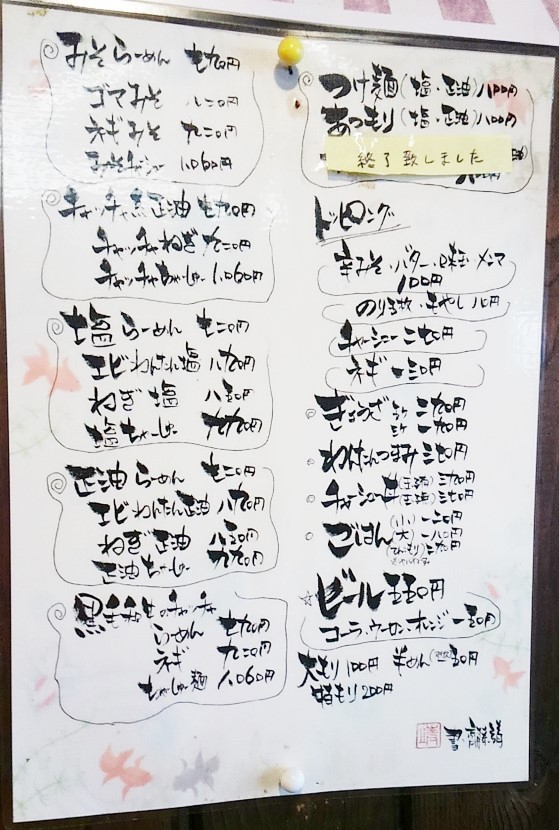 みそらーめん 七九〇円
ゴマみそ 八二〇円
ネギみそ 九二〇円
みそチャーシュー 1,060円
チャッチャ黒正油 七九〇円
チャッチャねぎ 九二〇円
チャッチャちゃーしゅー 1,060円
塩らーめん 七二〇円
エビわんたん塩 八九〇円
ねぎ塩 八五〇円
塩ちゃーしゅー 九九〇円
正油らーめん 七二〇円
エビわんたん正油 八九〇円
ねぎ正油 八五〇円
正油ちゃーしゅー 九九〇円
らーめん 七九〇円
ネギ 九二〇円
ちゃしゅー麺 1,060円
つけ麺(塩・正油)八〇〇円
あつもり(塩・正油)八〇〇円
終了致しました
トッピング
辛みそ・バター・味玉・メンマ
100円
チャーシュー 二九〇円
ネギ 一三〇円
ぎょうざ
わんたんつまみ
チャーシュー丼
ごはん(小)
(大)
ビール 五五〇円
コーラ・ウーロン・オレンジ 一五〇円
大もり 100円 半めん
特もり 200円